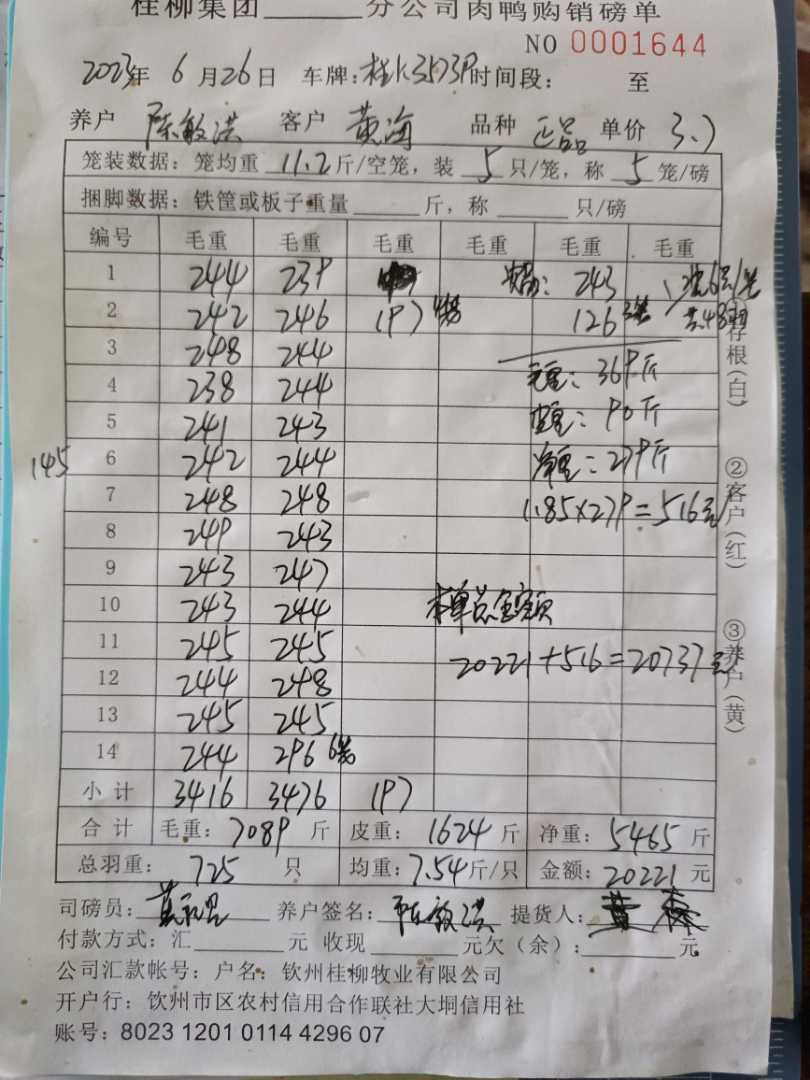 桂柳集团______分公司肉鸭购销磅单
NO 0001644
2023年 6月26日 车牌：桂K3573P 时间段： 至
养户 陈敏洪 客户 黄海 品种 正品 单价 3.7
笼装数据：笼均重 11.2 斤/空笼，装 5 只/笼，称 5 笼/磅
捆脚数据：铁筐或板子重量______斤，称______只/磅
编号 毛重 毛重 毛重 毛重 毛重 毛重
1 244 239 243
2 242 246 197 126
3 248 244
4 238 244 毛重：369斤
5 241 243 皮重：90斤
145 6 242 244 净重：279斤
7 248 248 1.85×279=516元
8 249 243
9 243 247
10 243 244 本单总金额
11 245 245 20221+516=20737元
12 244 248
13 245 245
14 244 296 6笼
小计 3416 3476 197
合计 毛重：7089斤 皮重：1624斤 净重：5465斤
总羽重：725只 均重：7.54斤/只 金额：20221元
司磅员： 养户签名：陈敏洪 提货人：
付款方式：汇______元 收现______元欠（余）：______元
公司汇款帐号：户名：钦州桂柳牧业有限公司
开户行：钦州市区农村信用合作联社大垌信用社
账号：8023 1201 0114 4296 07
存根（白）
②客户（红）
③养户（黄）